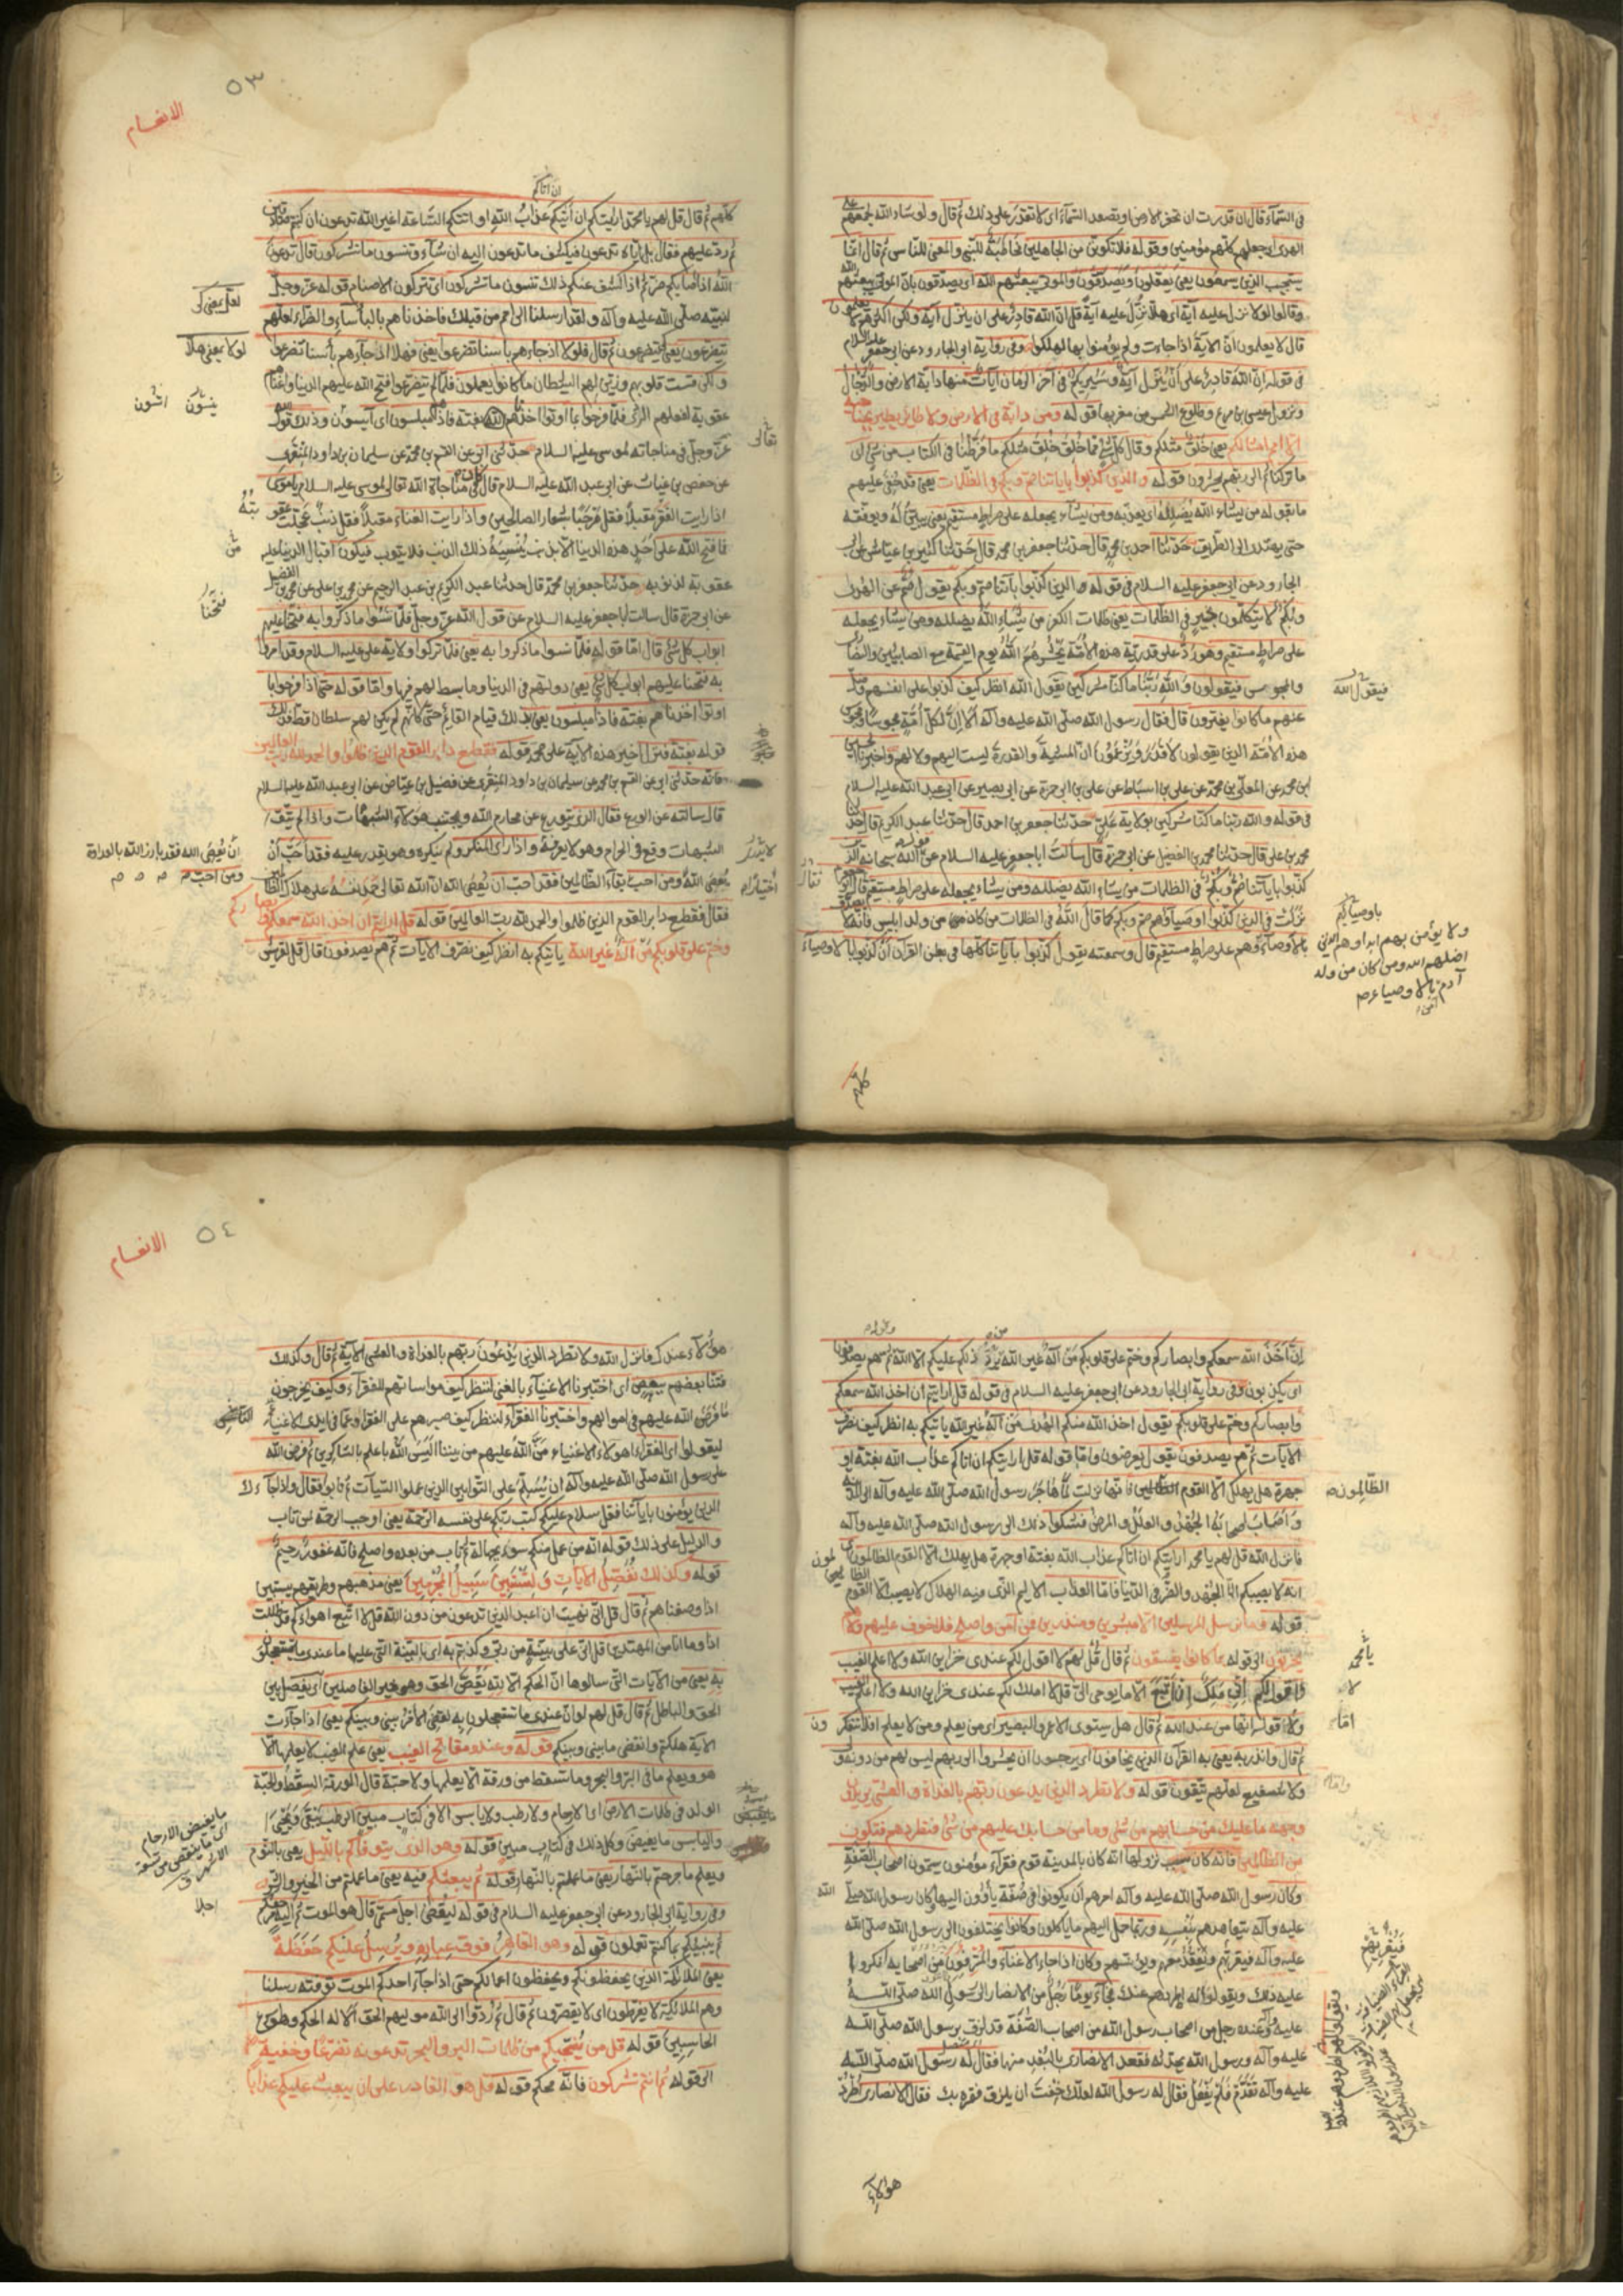 فى السّمآء قال ان قدرت ان تحفر الارض او تصعد السّمآء اى لا تقدر على ذلك ثم قال ولو شاء الله لجمعهم على
الهدى اى جعلهم كلّهم مؤمنين وقوله فلا تكوننّ من الجاهلين مخاطبة للنّبى والمعنى للنّاس ثم قال انّما
يستجيب الذين يسمعون يعنى يعقلون ويصدّقون والموتى يبعثهم الله اى يصدّقون بانّ الموتى يبعثهم الله
وقالوا لولا نزل عليه آية اى هلّا نزل عليه آية قل انّ الله قادر على ان ينزل آية ولكن اكثرهم لا يعلمون
قال لا يعلمون انّ الآية اذا جاءت ولم يؤمنوا بها لهلكوا وفى رواية ابى الجارود عن ابى جعفر عليه السلام
فى قوله انّ الله قادر على أن ينزل آية وسيريكم فى آخر الزمان آيات منها دابة الارض والدّجّال
ونزول عيسى بن مريم وطلوع الشمس من مغربها قوله وما من دابة فى الارض ولا طائر يطير بجناحيه
الّا امم امثالكم يعنى خلق مثلكم وقال كلّ شئ ممّا خلق خلق مثلكم ما فرّطنا فى الكتاب من شئ اى
ما تركنا ثم الى ربّهم يحشرون قوله والذين كذّبوا باياتنا صمّ وبكم فى الظلمات يعنى قد خفى عليهم
ما تقوله من يشاء الله يضلله اى يعذبه ومن يشاء يجعله على صراط مستقيم يعنى يبيّن له ويوفّقه
حتى يهتدى الى الطّريق حدّثنا احمد بن محمد قال حدّثنا جعفر بن محمد قال حدّثنا كثير بن عياش عن ابى
الجارود عن ابى جعفر عليه السلام فى قوله والذين كذّبوا بآياتنا صمّ وبكم يقول صمّ عن الهدى
وبكم لا يتكلّمون بخير فى الظلمات يعنى ظلمات الكفر من يشاء الله يضلله ومن يشاء يجعله
على صراط مستقيم وهو ردّ على قدريّة هذه الامّة يحشرهم الله يوم القيمة مع الصابئين والنصارى
والمجوس فيقولون والله ربّنا ما كنّا مشركين يقول الله انظر كيف كذبوا على انفسهم وضلّ
عنهم ما كانوا يفترون قال فقال رسول الله صلّى الله عليه وآله الا انّ لكلّ امّة مجوسا ومجوس
هذه الامّة الذين يقولون لا قدر ويزعمون انّ المشيّة والقدرة ليست اليهم ولا لهم واخبرنا الحسين
ابن محمد عن المعلّى بن محمد عن على بن اسباط عن على بن ابى حمزة عن ابى بصير عن ابى عبد الله عليه السلام
فى قوله والله ربّنا ما كنّا مشركين بولاية على حدّثنا جعفر بن احمد قال حدّثنا عبد الكريم قال حدّثنا
محمد بن على قال حدّثنا محمد بن الفضيل عن ابى حمزة قال سألت ابا جعفر عليه السلام عن قول الله سبحانه الذين
كذبوا باياتنا صمّ وبكم فى الظلمات من يشاء الله يضلله ومن يشاء يجعله على صراط مستقيم فقال ابو جعفر
نزلت فى الذين كذّبوا اوصياءهم صمّ وبكم كما قال الله فى الظلمات من كان من ولد ابليس فانّه لا يصدّق
بالاوصيآء وهم على صراط مستقيم قال وسمعته يقول كذّبوا باياتنا كلّها فى بطن القرآن أن كذّبوا بالاوصيآء
فيقول الله
باوصيآئهم
ولا يؤمن بهم ابدا وهم الذين
اضلهم الله ومن كان من ولد
آدم آمن بالاوصياء
كلّهم
٥٣
الانعام
ان اتاكم
كلّهم ثم قال قل لهم يا محمد ارايتكم ان أتيكم عذاب الله او اتتكم السّاعة اغير الله تدعون ان كنتم صادقين
ثم ردّ عليهم فقال بل ايّاه تدعون فيكشف ما تدعون اليه ان شآء وتنسون ما تشركون قال تدعون
الله اذا اصابكم ضرّ ثمّ اذا كشف عنكم ذلك تنسون ما تشركون اى تتركون الاصنام قوله عزّ وجلّ
لنبيّه صلّى الله عليه وآله ولقد ارسلنا الى امم من قبلك فاخذناهم بالبأسآء والضرّاء لعلّهم
يتضرعون يعنى كى يتضرعون ثم قال فلولا اذ جاءهم باسنا تضرعوا يعنى فهلّا اذ جآءهم بأسنا تضرعوا
ولكن قست قلوبهم وزيّن لهم الشيطان ما كانوا يعملون فلمّا لم يتضرعوا فتح الله عليهم الدنيا واغناهم
عقوبة لفعلهم الرّدى فلمّا فرحوا بما اوتوا اخذناهم بغتة فاذا هم مبلسون اى آيسون وذلك قول الله
عزّ وجلّ فى مناجاته لموسى عليه السلام حدّثنى ابى عن القسم بن محمد عن سليمان بن داود المنقرى
عن حفص بن غياث عن ابى عبد الله عليه السلام قال كان فى مناجاة الله تعالى لموسى عليه السلام يا موسى
اذا رايت الفقر مقبلا فقل مرحبا بشعار الصالحين واذا رايت الغناء مقبلا فقل ذنب عجّلت عقوبته
فما فتح الله على احد هذه الدنيا الّا بذنب ينسيه ذلك الذنب فلا يتوب فيكون اقبال الدنيا عليه
عقوبة لذنوبه حدّثنا جعفر بن محمد قال حدثنا عبد الكريم بن عبد الرحيم عن محمد بن على عن محمد بن الفضيل
عن ابى حمزة قال سالت ابا جعفر عليه السلام عن قول الله عزّ وجلّ فلمّا نسوا ما ذكروا به فتحنا عليهم
ابواب كل شئ قال امّا قوله فلمّا نسوا ما ذكروا به يعنى فلمّا تركوا ولاية على عليه السلام وقد امروا
به فتحنا عليهم ابواب كل شئ يعنى دولتهم فى الدنيا وما بسط لهم فيها وامّا قوله حتى اذا فرحوا بما
اوتوا اخذناهم بغتة فاذا هم مبلسون يعنى بذلك قيام القائم حتى كانّهم لم يكن لهم سلطان قط فذلك
قوله بغتة فنزل آخر هذه الآية على محمد قوله فقطع دابر القوم الذين ظلموا والحمد لله ربّ العالمين
فانّه حدّثنى ابى عن القسم بن محمد عن سليمان بن داود المنقرى عن فضيل بن عياض عن ابى عبد الله عليه السلام
قال سالته عن الورع فقال الذى يتورّع عن محارم الله ويجتنب هؤلآء الشبهات واذا لم يتّق
الشبهات وقع فى الحرام وهو لا يعرفه واذا راى المنكر ولم ينكره وهو يقدر عليه فقد احبّ أن
يعصى الله ومن احبّ بقآء الظّالمين فقد احبّ ان يعصى الله انّ الله تعالى حمد نفسه على هلاك الظالمين
فقال فقطع دابر القوم الذين ظلموا والحمد لله رب العالمين قوله قل ارايتم ان اخذ الله سمعكم وابصاركم
وختم على قلوبكم من اله غير الله ياتيكم به انظر كيف نصرّف الآيات ثم هم يصدفون قال قل لقريش
لعلّ بمعنى كى
لولا بمعنى هلّا
تعالى
فتحنا
لا يقدر
اختيارا
ان يعصى الله فقد بارز الله بالعداوة
ومن احبّ
إن أخذ الله سمعكم وابصاركم وختم على قلوبكم من اله غير الله يردّ ذلكم عليكم الّا الله ثم هم يصدفون
اى يكذبون وفى رواية ابى الجارود عن ابى جعفر عليه السلام فى قوله قل ارايتم ان اخذ الله سمعكم
وابصاركم وختم على قلوبكم يقول اخذ الله منكم الهدى من اله غير الله ياتيكم به انظر كيف نصرف
الآيات ثم هم يصدفون يقول يعرضون وامّا قوله قل ارايتكم ان اتاكم عذاب الله بغتة او
جهرة هل يهلك الّا القوم الظالمون فانّها نزلت لمّا هاجر رسول الله صلّى الله عليه وآله الى المدينة
واصاب اصحابه الجهد والعلل والمرض فشكوا ذلك الى رسول الله صلّى الله عليه وآله
فانزل الله قل لهم يا محمد ارايتكم ان اتاكم عذاب الله بغتة او جهرة هل يهلك الّا القوم الظالمون اى
انه لا يصيبكم الّا الجهد والضّرّ فى الدّنيا فامّا العذاب الاليم الذى فيه الهلاك لا يصيب الّا القوم الظالمون
قوله وما نرسل المرسلين الّا مبشرين ومنذرين فمن آمن واصلح فلا خوف عليهم ولا هم
يحزنون الى قوله بما كانوا يفسقون ثم قال قل لهم لا اقول لكم عندى خزاين الله ولا اعلم الغيب
ولا اقول لكم انّى ملك ان اتّبع الّا ما يوحى الىّ قل لا املك لكم عندى خزاين الله ولا اعلم الغيب
ولا اقول انّها من عند الله ثم قال هل يستوى الاعمى والبصير اى من يعلم ومن لا يعلم افلا تتفكرون
ثم قال وانذر به يعنى به القرآن الذين يخافون اى يرجون ان يحشروا الى ربهم ليس لهم من دونه ولىّ
ولا شفيع لعلّهم يتّقون قوله ولا تطرد الذين يدعون ربّهم بالغداة والعشىّ يريدون
وجهه ما عليك من حسابهم من شئ وما من حسابك عليهم من شئ فتطردهم فتكون
من الظالمين فانّه كان سبب نزولها انّه كان بالمدينة قوم فقرآء مؤمنون يسمّون اصحاب الصّفّة
وكان رسول الله صلّى الله عليه وآله امرهم ان يكونوا فى صفّة يأوون اليها وكان رسول الله صلّى الله
عليه وآله يتعاهدهم بنفسه وربّما حمل اليهم ما ياكلون وكانوا يختلفون الى رسول الله صلّى الله
عليه وآله فيقرّبهم ويقعد معهم ويؤنسهم وكان اذا جاء الاغنيآء والمترفون من اصحابه انكروا
عليه ذلك ويقولوا له اطردهم عنك فجآء يوما رجل من الانصار الى رسول الله صلّى الله
عليه وآله وعنده رجل من اصحاب رسول الله من اصحاب الصّفّة قد لزق برسول الله صلّى الله
عليه وآله ورسول الله يحدثه فقعد الانصارى بالبعد منها فقال له رسول الله صلّى الله
عليه وآله تقدّم فلم يفعل فقال له رسول الله لعلّك خفت ان يلزق فقره بك فقال الانصارى اطرد
الظّالمون
يا محمد
هؤلآء
٥٤
الانعام
هؤلآء عندك فانزل الله ولا تطرد الذين يدعون ربّهم بالغداة والعشى الآية ثم قال وكذلك
فتنّا بعضهم ببعض اى اختبرنا الاغنيآء بالغنى لننظر كيف مواساتهم للفقرآء وكيف يخرجون
ما فرض الله عليهم فى اموالهم واختبرنا الفقراء لننظر كيف صبرهم على الفقر وعمّا فى ايدى الاغنيآء
ليقولوا اى الفقرآء اهؤلاء الاغنياء منّ الله عليهم من بيننا اليس الله باعلم بالشاكرين ثم فرض الله
على رسول الله صلّى الله عليه وآله ان يسلّم على التّوابين الذين عملوا السّيّآت ثم تابوا فقال واذا جآءك
الذين يؤمنون باياتنا فقل سلام عليكم كتب ربّكم على نفسه الرّحمة يعنى اوجب الرحمة لمن تاب
والدليل على ذلك قوله انّه من عمل منكم سوء بجهالة ثم تاب من بعده واصلح فانّه غفور رحيم
قوله وكذلك نفصّل الآيات ولتستبين سبيل المجرمين يعنى مذهبهم وطريقهم يستبين
اذا وصفناهم ثم قال قل انّى نهيت ان اعبد الذين تدعون من دون الله قل لا اتّبع اهواءكم قد ضللت
اذا وما انا من المهتدين قل انّى على بيّنة من ربّى وكذبتم به اى بالبيّنة التى عليها ما عندى ما تستعجلون
به يعنى من الآيات التى سالوها ان الحكم الّا لله يقصّ الحق وهو خير الفاصلين اى يفصل بين
الحق والباطل ثم قال قل لهم لو انّ عندى ما تستعجلون به لقضى الامر بينى وبينكم يعنى اذا جاءت
الآية هلكتم وانقضى ما بينى وبينكم قوله وعنده مفاتح الغيب يعنى علم الغيب لا يعلمها الّا
هو ويعلم ما فى البرّ والبحر وما تسقط من ورقة الّا يعلمها ولا حبّة قال الورقة السقط والحبّة
الولد فى ظلمات الارض الارحام ولا رطب ولا يابس الّا فى كتاب مبين الرطب يبقى ويحيى
واليابس ما يغيض وكل ذلك فى كتاب مبين قوله وهو الذى يتوفّاكم بالّليل يعنى بالنّوم
ويعلم ما جرحتم بالنّهار يعنى ما عملتم بالنّهار قوله ثم يبعثكم فيه يعنى ما عملتم من الخير والشر
وفى رواية ابى الجارود عن ابى جعفر عليه السلام فى قوله ليقضى اجل مسمّى قال هو الموت ثم اليه مرجعكم
ثم ينبّئكم بما كنتم تعملون قوله وهو القاهر فوق عباده ويرسل عليكم حفظة
يعنى الملائكة الذين يحفظونكم ويحفظون اعمالكم حتى اذا جآء احدكم الموت توفته رسلنا
وهم الملائكة لا يفرّطون اى لا يقصّرون ثم قال ثم ردّوا الى الله موليهم الحق الا له الحكم وهو اسرع
الحاسبين قوله قل من ينجّيكم من ظلمات البر والبحر تدعونه تضرّعا وخفية
الى قوله ثم انتم تشركون فانّه محكم قوله قل هو القادر على ان يبعث عليكم عذابا
ما يغيض الارحام
اى ما ينقص من تسعة
الاشهر